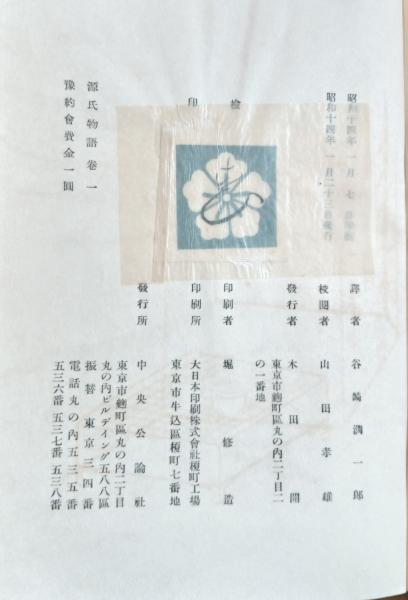 昭和十四年 一月 七
昭和十四年 一月二十三日發行
譯者 谷崎潤一郎
校閲者 山田孝雄
發行者 木田開
東京市麴町區丸の內二丁目二
の一番地
印刷者 堀修造
印刷所 大日本印刷株式會社榎町工場
東京市牛込區榎町七番地
發行所 中央公論社
東京市麴町區丸の內二丁目
丸の內ビルデイング五八八區
振替東京三四番
電話丸の內五三五番
五三六番 五三七番 五三八番
檢
印
源氏物語 卷一
豫約會費金一圓